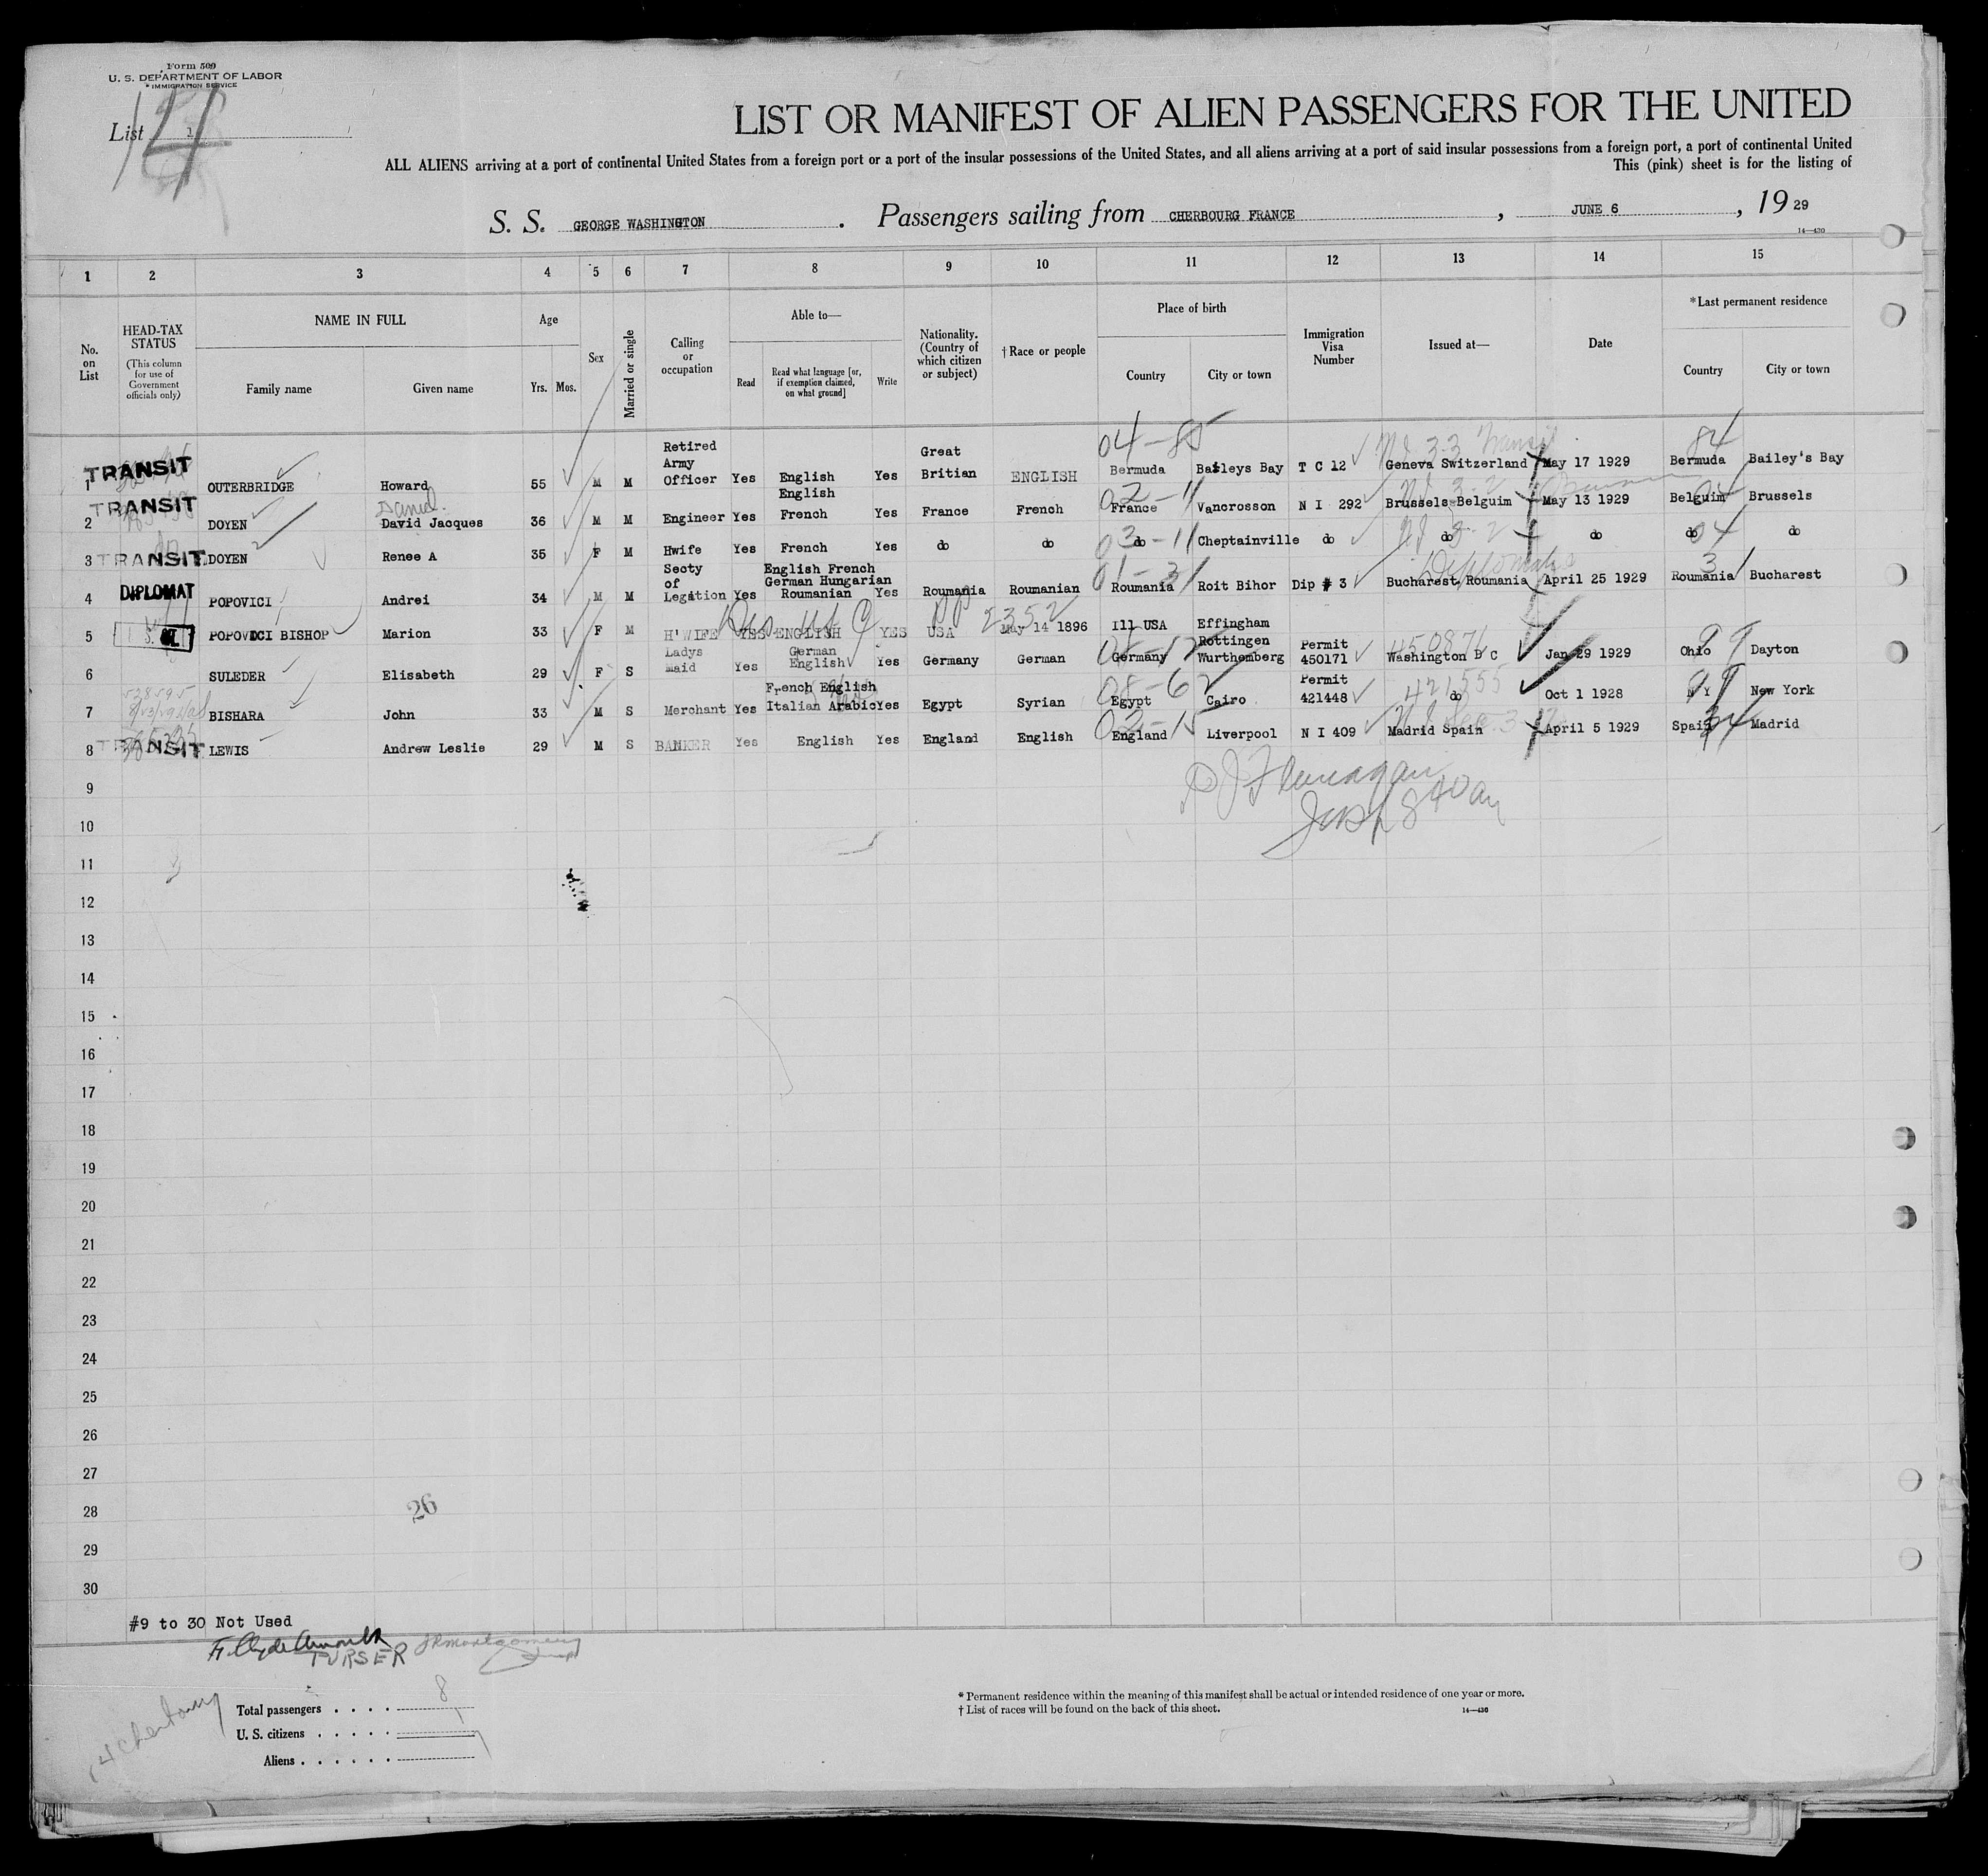 Form 500
U. S. DEPARTMENT OF LABOR
IMMIGRATION SERVICE
List 1
14
LIST OR MANIFEST OF ALIEN PASSENGERS FOR THE UNITED
ALL ALIENS arriving at a port of continental United States from a foreign port or a port of the insular possessions of the United States, and all aliens arriving at a port of said insular possessions from a foreign port, a port of continental United
This (pink) sheet is for the listing of
S. S. GEORGE WASHINGTON . Passengers sailing from CHERBOURG FRANCE , JUNE 6 , 19 29
14—430
1 2 3 4 5 6 7 8 9 10 11 12 13 14 15
No. on List
HEAD-TAX STATUS
(This column for use of Government officials only)
NAME IN FULL
Family name
Given name
Age
Yrs. Mos.
Sex
Married or single
Calling or occupation
Able to—
Read
Read what language [or, if exemption claimed, on what ground]
Write
Nationality. (Country of which citizen or subject)
†Race or people
Place of birth
Country
City or town
Immigration Visa Number
Issued at—
Date
*Last permanent residence
Country
City or town
04-85 84
TRANSIT 1 OUTERBRIDGE Howard 55 M M Retired Army Officer Yes English Yes Great Britian ENGLISH Bermuda Baileys Bay T C 12 Geneva Switzerland May 17 1929 Bermuda Bailey's Bay
Transit
Daniel
02-11
TRANSIT 2 DOYEN David Jacques 36 M M Engineer Yes English French Yes France French France Vancrosson N I 292 Brussels Belguim May 13 1929 Belguim Brussels
03-11 04
TRANSIT 3 DOYEN Renee A 35 F M Hwife Yes French Yes do do do Cheptainville do do do do do
01-31 Diplomatic 3
DIPLOMAT 4 POPOVICI Andrei 34 M M Secty of Legation Yes English French German Hungarian Roumanian Yes Roumania Roumanian Roumania Roit Bihor Dip # 3 Bucharest Roumania April 25 1929 Roumania Bucharest
2352
5 POPOVICI BISHOP Marion 33 F M H'WIFE YES ENGLISH YES USA May 14 1896 Ill USA Effingham
450876 99
6 SULEDER Elisabeth 29 F S Ladys maid Yes German English Yes Germany German Germany Rottingen Wurthemberg Permit 450171 Washington D C Jan 29 1929 Ohio Dayton
08-62 421555 99
7 BISHARA John 33 M S Merchant Yes French English Italian Arabic Yes Egypt Syrian Egypt Cairo Permit 421448 do Oct 1 1928 N Y New York
02-15
TRANSIT 8 LEWIS Andrew Leslie 29 M S BANKER Yes English Yes England English England Liverpool N I 409 Madrid Spain April 5 1929 Spain Madrid
9
10
11
12
13
14
15
16
17
18
19
20
21
22
23
24
25
26
27
28
26
29
30
#9 to 30 Not Used
PURSER
Total passengers . . . . 8
U. S. citizens . . . . . 1
Aliens . . . . . . 7
* Permanent residence within the meaning of this manifest shall be actual or intended residence of one year or more.
† List of races will be found on the back of this sheet.
14—430